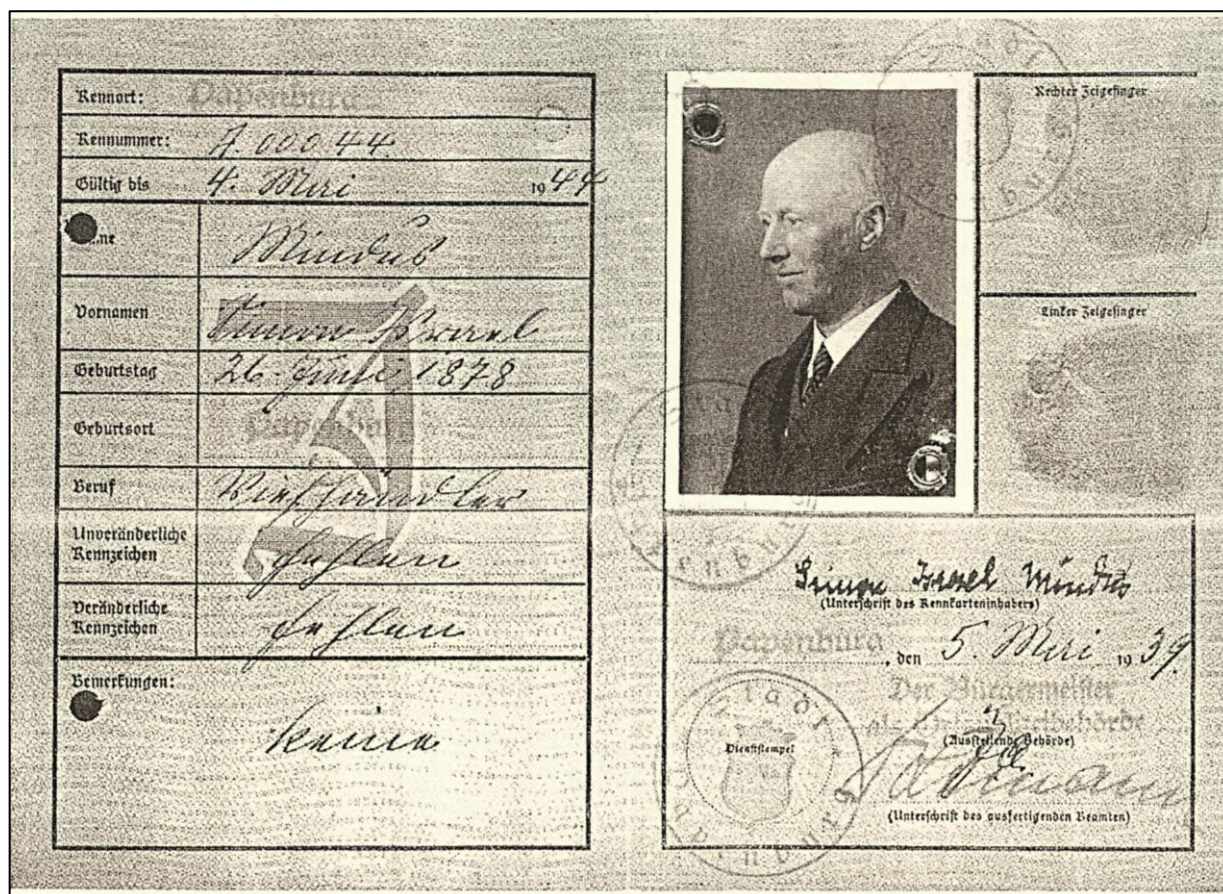 Kennort: Papenburg
Kennummer: A 00044
Gültig bis 4. Mai 1944
Name Mindus
Vornamen Simon Israel
Geburtstag 26. Juni 1878
Geburtsort Papenburg
Beruf Viehhändler
Unveränderliche
Kennzeichen fehlen
Veränderliche
Kennzeichen fehlen
Bemerkungen:
keine
J
Rechter Zeigefinger
Linker Zeigefinger
Stadt Papenburg
Simon Israel Mindus
(Unterschrift des Kennkarteninhabers)
Papenburg, den 5. Mai 1939
Der Bürgermeister
als Ortspolizeibehörde
(Ausstellende Behörde)
Dienststempel
Stadt Papenburg
(Unterschrift des ausfertigenden Beamten)